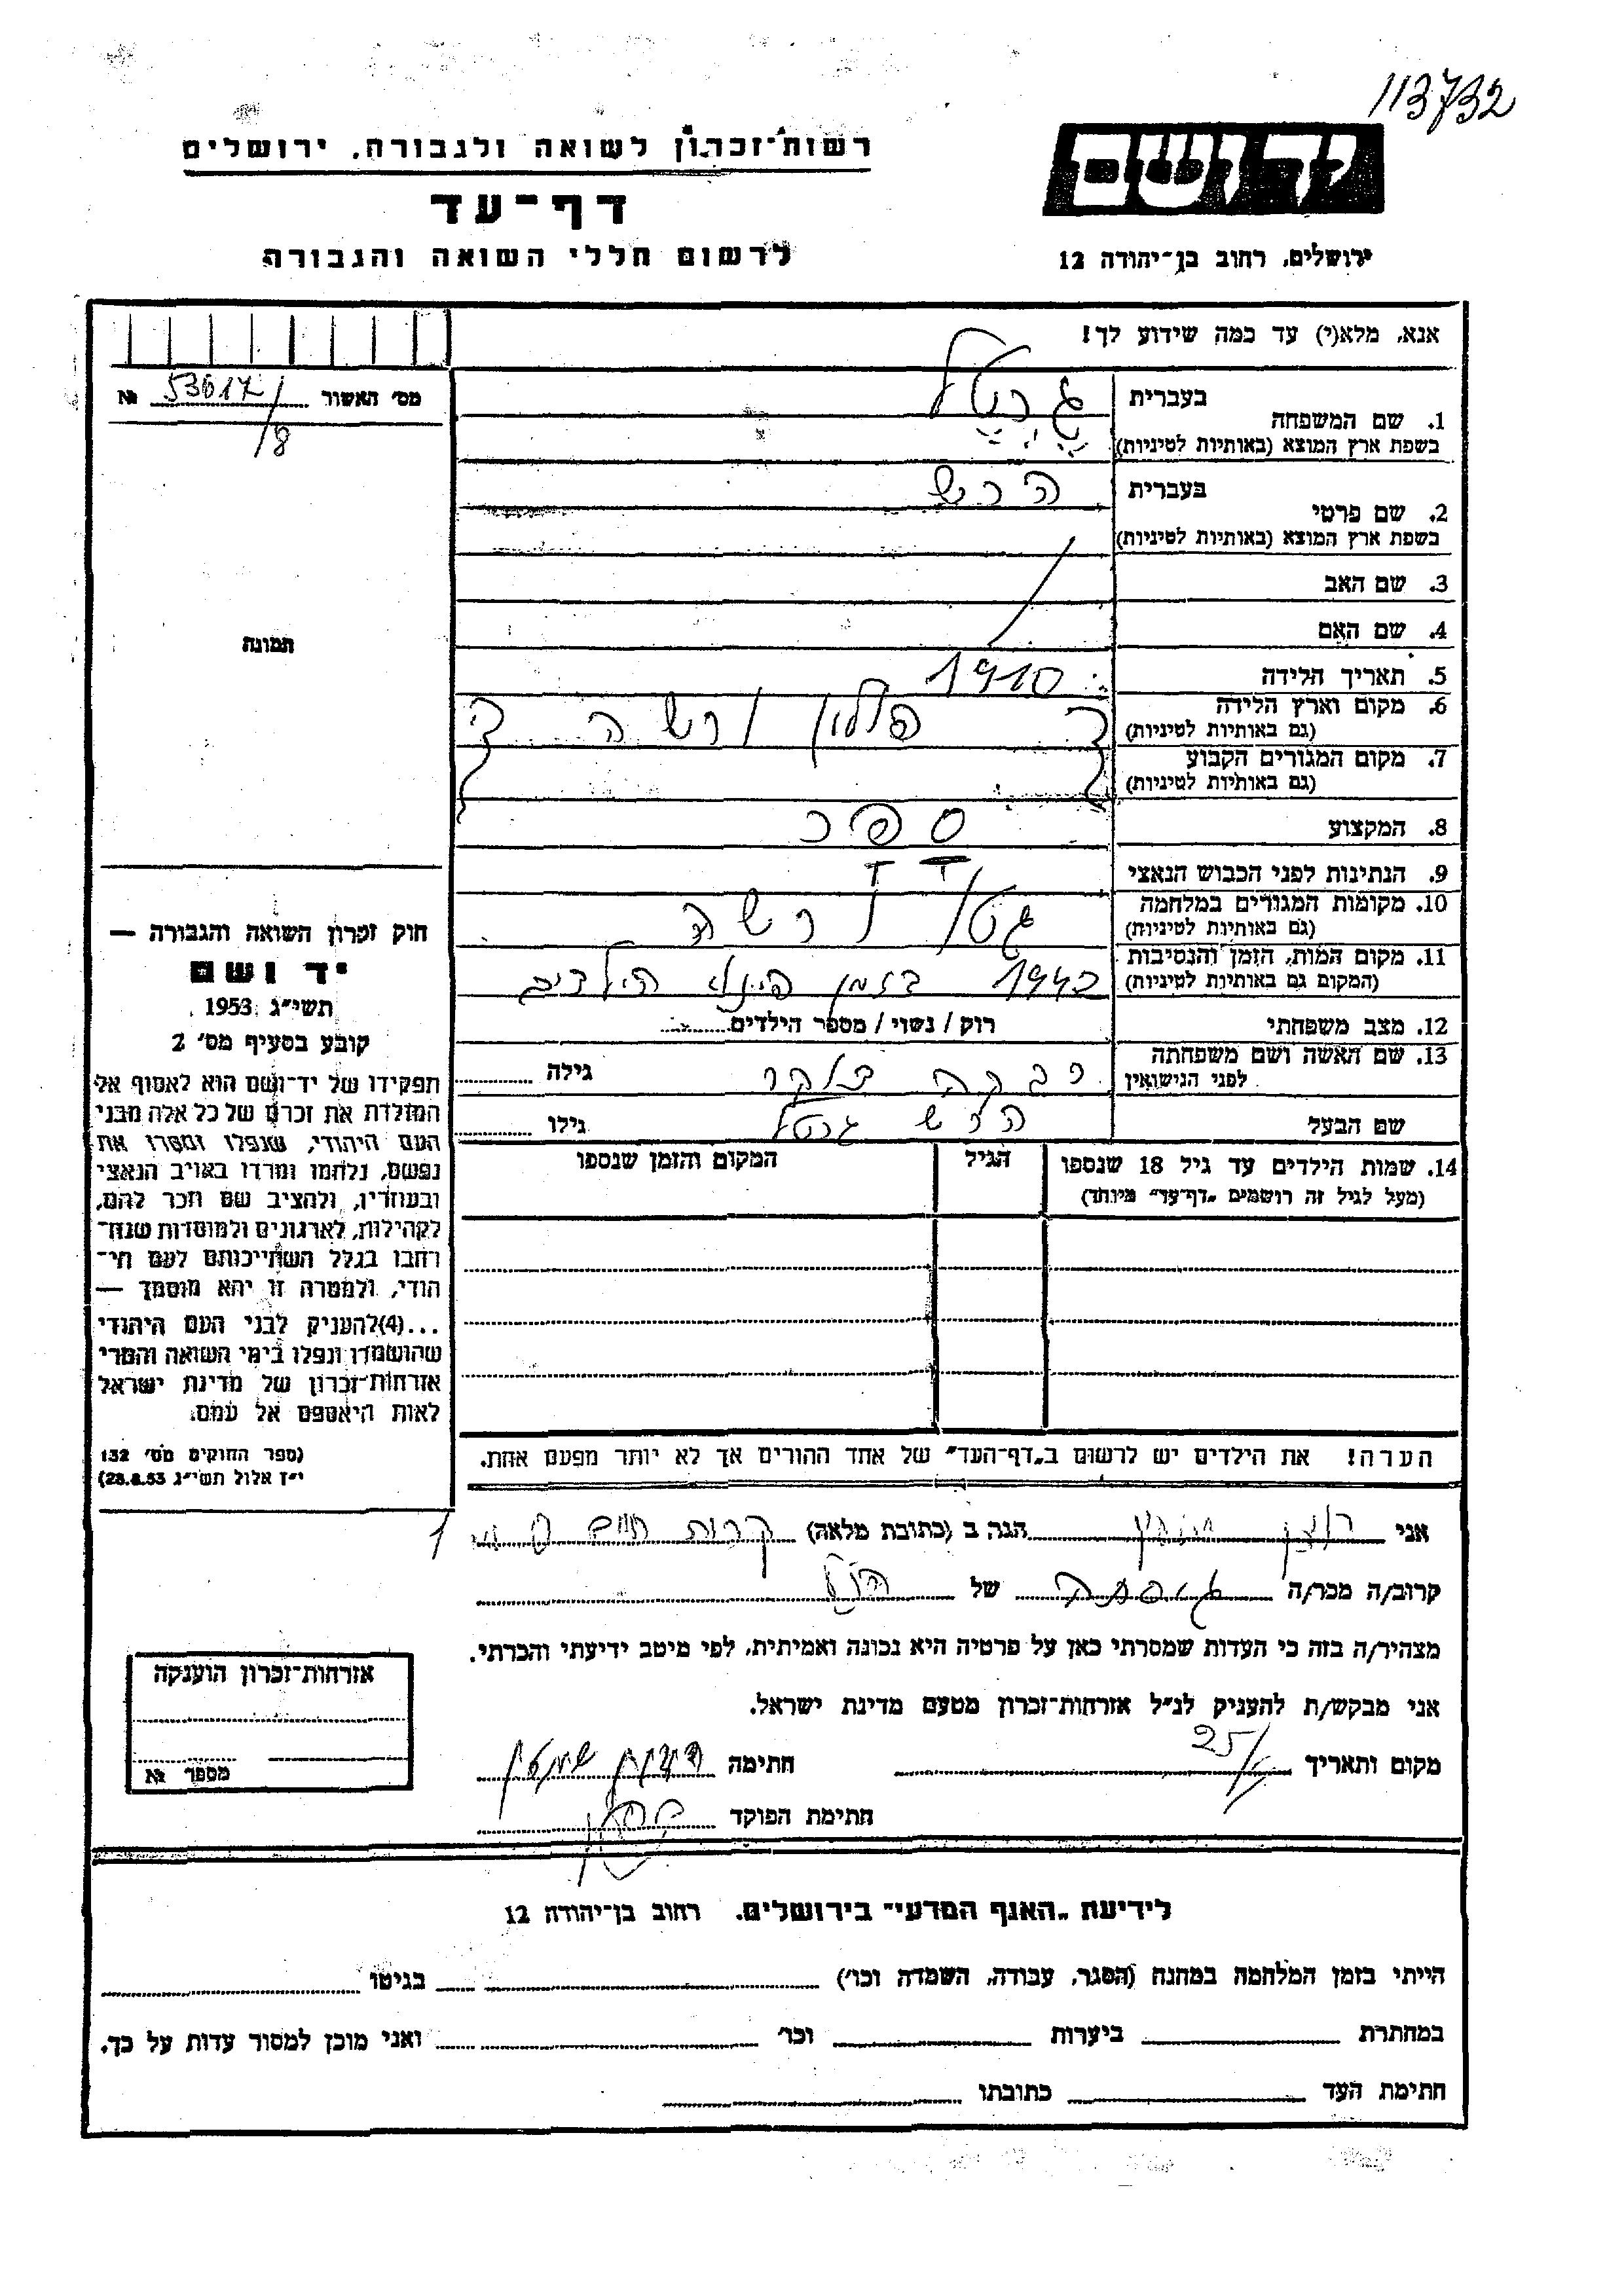 113732
רשות־זכרון לשואה ולגבורה, ירושלים
דף־עד
לרשום חללי השואה והגבורה
יד ושם
ירושלים, רחוב בן־יהודה 12
אנא, מלא(י) עד כמה שידוע לך!
מס׳ האשור 53617/ №
/8
1. שם המשפחה
בעברית גרטל
בשפת ארץ המוצא (באותיות לטיניות)
2. שם פרטי
בעברית הרש
בשפת ארץ המוצא (באותיות לטיניות)
3. שם האב
4. שם האם
5. תאריך הלידה 1910
6. מקום וארץ הלידה פולין ורשה
(גם באותיות לטיניות)
7. מקום המגורים הקבוע
(גם באותיות לטיניות)
8. המקצוע ספר
9. הנתינות לפני הכבוש הנאצי
10. מקומות המגורים במלחמה גטו ורשה
(גם באותיות לטיניות)
11. מקום המות, הזמן והנסיבות בזמן הילדים
(המקום גם באותיות לטיניות)
12. מצב משפחתי רוק / נשוי / מספר הילדים
13. שם האשה ושם משפחתה רבקה גילה
לפני הנישואין
שם הבעל הרש גרטל גילו
14. שמות הילדים עד גיל 18 שנספו הגיל המקום והזמן שנספו
(מעל לגיל זה רושמים „דף־עד״ מיוחד)
הערה! את הילדים יש לרשום ב„דף־העד״ של אחד ההורים אך לא יותר מפעם אחת.
תמונה
חוק זכרון השואה והגבורה —
יד ושם
תשי״ג 1953
קובע בסעיף מס׳ 2
תפקידו של יד־ושם הוא לאסוף אל
המולדת את זכרם של כל אלה מבני
העם היהודי, שנפלו ומסרו את
נפשם, נלחמו ומרדו באויב הנאצי
ובעוזריו, ולהציב שם וזכר להם,
לקהילות, לארגונים ולמוסדות שנח־
רבו בגלל השתייכותם לעם הי־
הודי, ולמטרה זו יהא מוסמך —
...(4)להעניק לבני העם היהודי
שהושמדו ונפלו בימי השואה והמרי
אזרחות־זכרון של מדינת ישראל
לאות היאספם אל עמם.
(ספר החוקים מס׳ 132
י״ז אלול תשי״ג 28.8.53)
אני הגה ב (כתובת מלאה) קרית
קרוב/ה מכר/ה של הנ״ל
מצהיר/ה בזה כי העדות שמסרתי כאן על פרטיה היא נכונה ואמיתית, לפי מיטב ידיעתי והכרתי.
אני מבקש/ת להעניק לנ״ל אזרחות־זכרון מטעם מדינת ישראל.
מקום ותאריך 25/ חתימה
חתימת הפוקד
אזרחות־זכרון הוענקה
מספר №
לידיעת „האגף המדעי״ בירושלים, רחוב בן־יהודה 12
הייתי בזמן המלחמה במחנה (הסגר, עבודה, השמדה וכו׳) בגיטו
במחתרת ביערות וכו׳ ואני מוכן למסור עדות על כך.
חתימת העד כתובתו